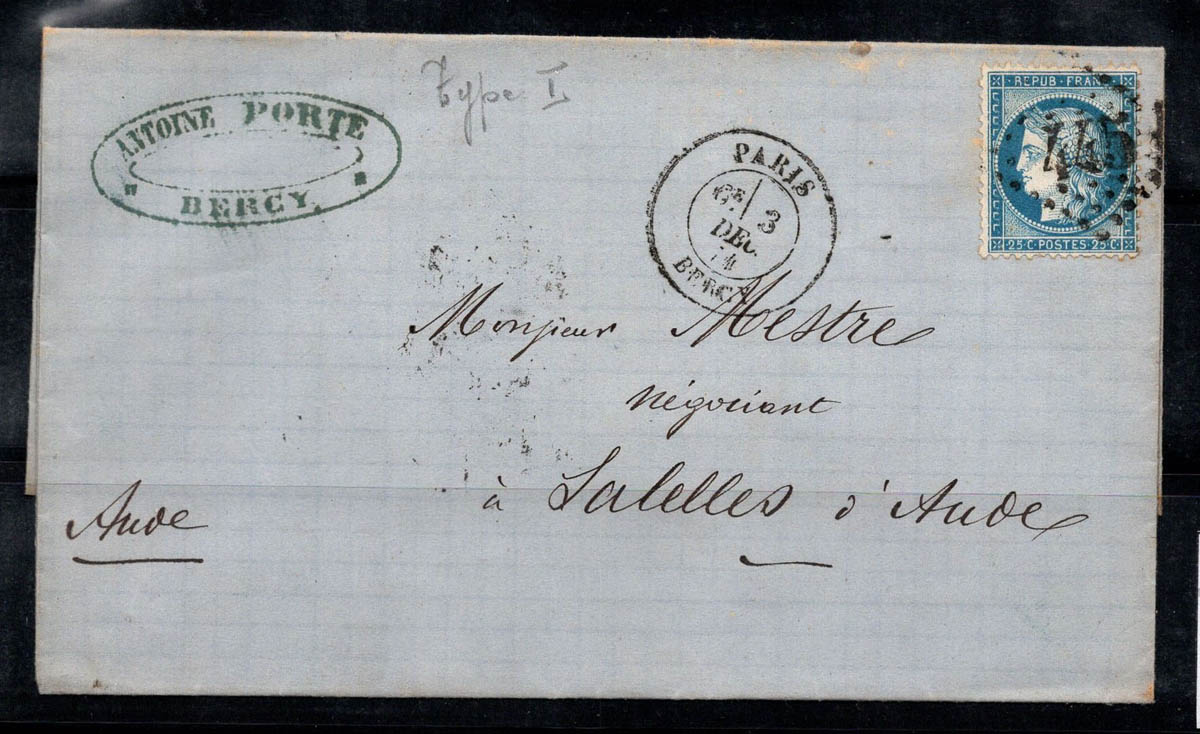 ANTOINE PORTE
BERCY.
Type I
PARIS
3
DEC.
BERCY
REPUB · FRANC
25 C · POSTES · 25 C
Monsieur Mestre
négociant
à Salelles d'Aude
Aude